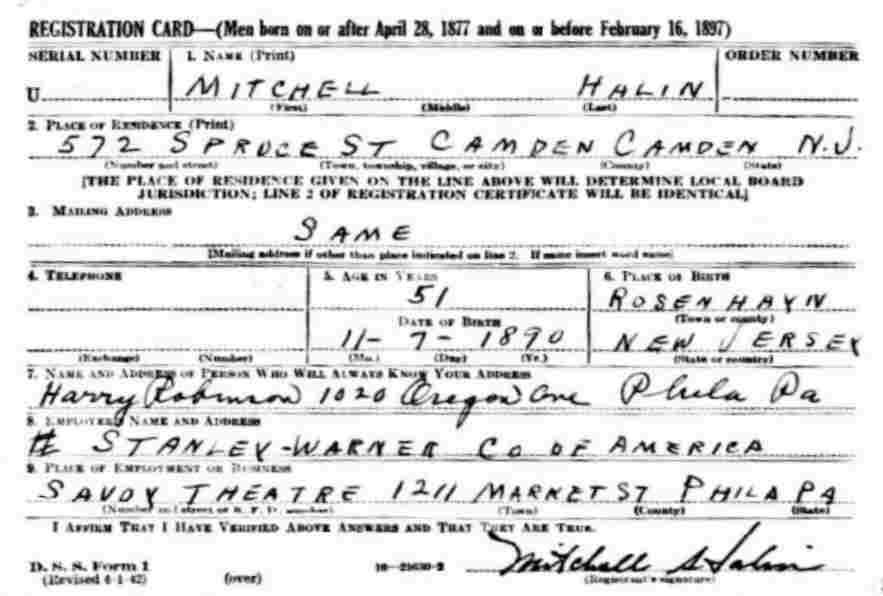 REGISTRATION CARD—(Men born on or after April 28, 1877 and on or before February 16, 1897)
SERIAL NUMBER 1. NAME (Print) ORDER NUMBER
U MITCHELL HALIN
(First) (Middle) (Last)
2. PLACE OF RESIDENCE (Print)
572 SPRUCE ST CAMDEN CAMDEN N.J.
(Number and street) (Town, township, village, or city) (County) (State)
[THE PLACE OF RESIDENCE GIVEN ON THE LINE ABOVE WILL DETERMINE LOCAL BOARD
JURISDICTION; LINE 2 OF REGISTRATION CERTIFICATE WILL BE IDENTICAL]
3. MAILING ADDRESS
SAME
[Mailing address if other than place indicated on line 2. If same insert word same]
4. TELEPHONE 5. AGE IN YEARS 6. PLACE OF BIRTH
51 ROSENHAYN
DATE OF BIRTH (Town or county)
11-7-1890 NEW JERSEY
(Exchange) (Number) (Mo.) (Day) (Yr.) (State or country)
7. NAME AND ADDRESS OF PERSON WHO WILL ALWAYS KNOW YOUR ADDRESS
Harry Robinson 1020 Oregon Ave Phila Pa
8. EMPLOYER'S NAME AND ADDRESS
STANLEY-WARNER CO OF AMERICA
9. PLACE OF EMPLOYMENT OR BUSINESS
SAVOY THEATRE 1211 MARKET ST PHILA PA
(Number and street or R. F. D. number) (Town) (County) (State)
I AFFIRM THAT I HAVE VERIFIED ABOVE ANSWERS AND THAT THEY ARE TRUE.
D. S. S. Form 1 16—21630-2 Mitchell Halin
(Revised 4-1-42) (over) (Registrant's signature)